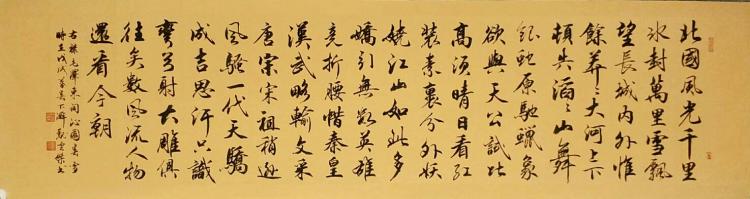 北國風光千里
冰封萬里雪飄
望長城内外惟
餘莽〻大河上下
頓失滔〻山舞
銀蛇原馳蠟象
欲與天公試比
高須晴日看紅
裝素裹分外妖
嬈江山如此多
嬌引無數英雄
竞折腰惜秦皇
漢武略輸文采
唐宗宋祖稍遜
風騷一代天驕
成吉思汗只識
彎弓射大雕俱
往矣數風流人物
還看今朝
右錄毛澤東詞沁園春雪
時在戊戌